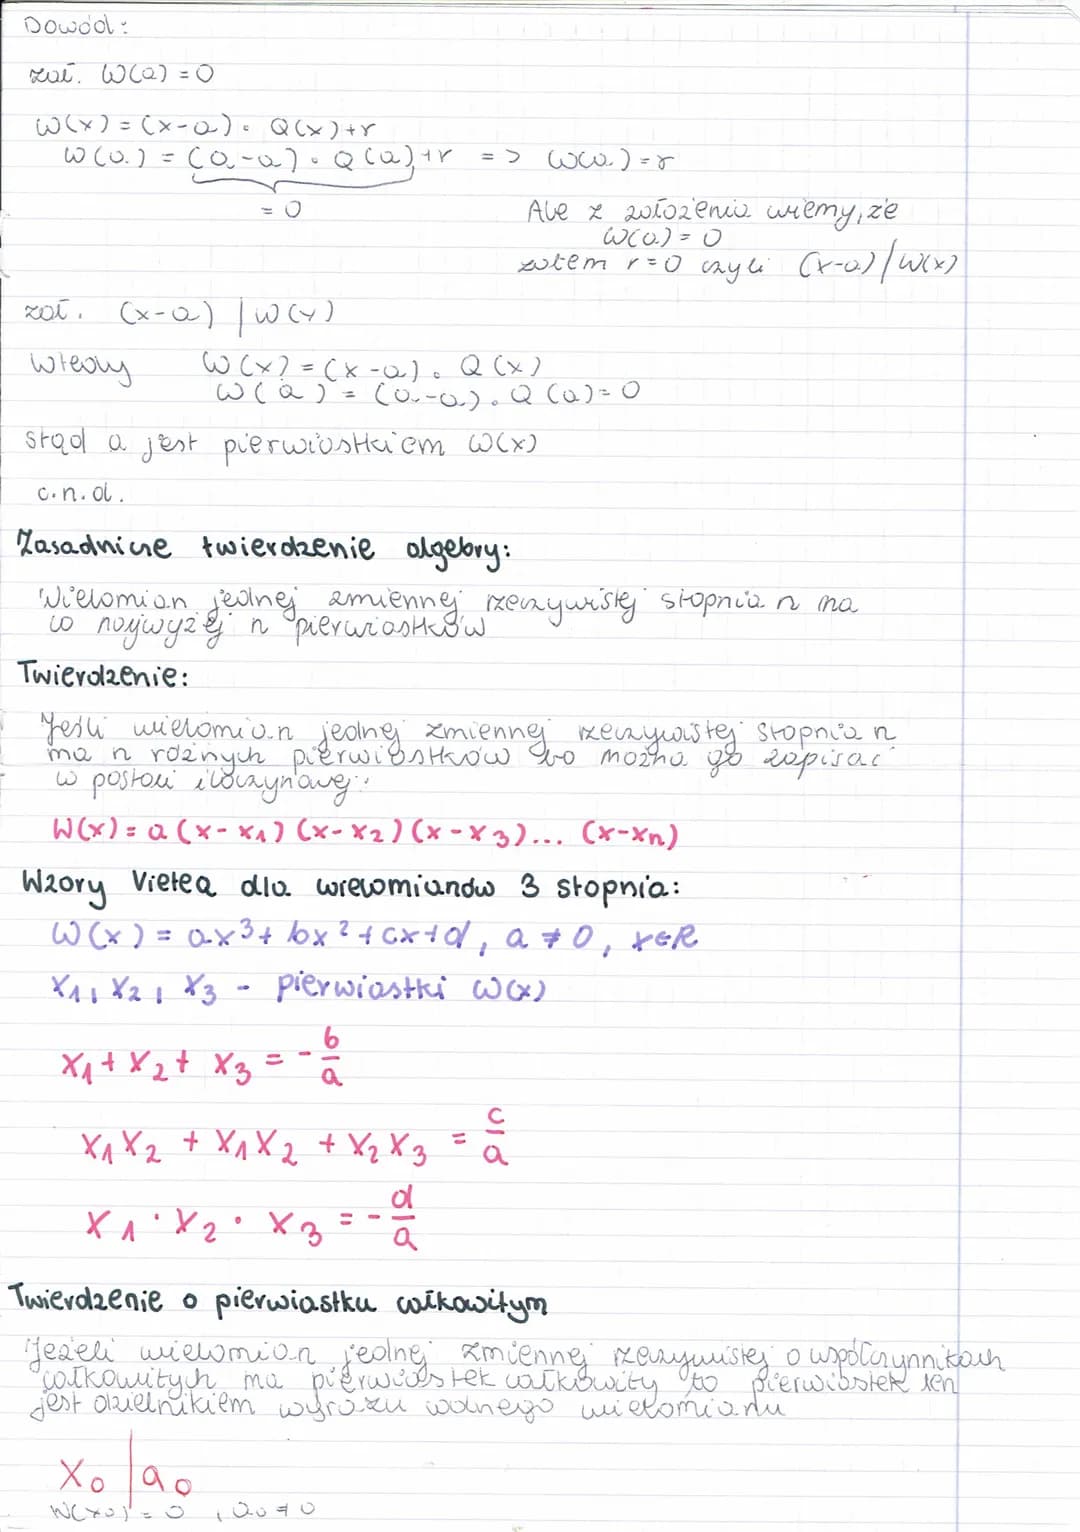 Dowód:
zał. W(a) = 0
W(x) = (x-a) · Q(x) + r
W(a) = (a-a) · Q(a) + r => W(a) = r
= 0
Ale z założenia wiemy, że
W(a) = 0
zatem r = 0 czyli (x-a) | W(x)
zał. (x-a) | W(x)
Wtedy W(x) = (x-a) · Q(x)
W(a) = (a-a) · Q(a) = 0
stąd a jest pierwiastkiem W(x)
c.n.d.
Zasadnicze twierdzenie algebry:
Wielomian jednej zmiennej rzeczywistej stopnia n ma
co najwyżej n pierwiastków
Twierdzenie:
Jeśli wielomian jednej zmiennej rzeczywistej stopnia n
ma n różnych pierwiastków to można go zapisać
w postaci iloczynowej:
W(x) = a (x-x₁) (x-x₂) (x-x₃)... (x-xₙ)
Wzory Vietea dla wielomianów 3 stopnia:
W(x) = ax³ + bx² + cx + d, a ≠ 0, x∈R
x₁, x₂, x₃ - pierwiastki W(x)
x₁ + x₂ + x₃ = - b/a
x₁x₂ + x₁x₂ + x₂x₃ = c/a
x₁ · x₂ · x₃ = - d/a
Twierdzenie o pierwiastku całkowitym
Jeżeli wielomian jednej zmiennej rzeczywistej o współczynnikach
całkowitych ma pierwiastek całkowity to pierwiastek ten
jest dzielnikiem wyrazu wolnego wielomianu
x₀ | a₀
W(x₀) = 0, a₀ ≠ 0